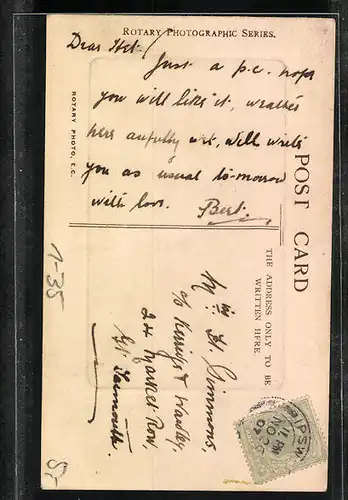 ROTARY PHOTOGRAPHIC SERIES.
Dear
Just a p.c. hope
you will like it, weather
here awfully wet, will write
you as usual to-morrow
with love. Bert.
ROTARY PHOTO, E.C.
POST CARD
THE ADDRESS ONLY TO BE
WRITTEN HERE.
Simmons,
c/o &
24 Market Row,
Gt. Yarmouth.
1-35
IPSW
11 AM
NO 26
07